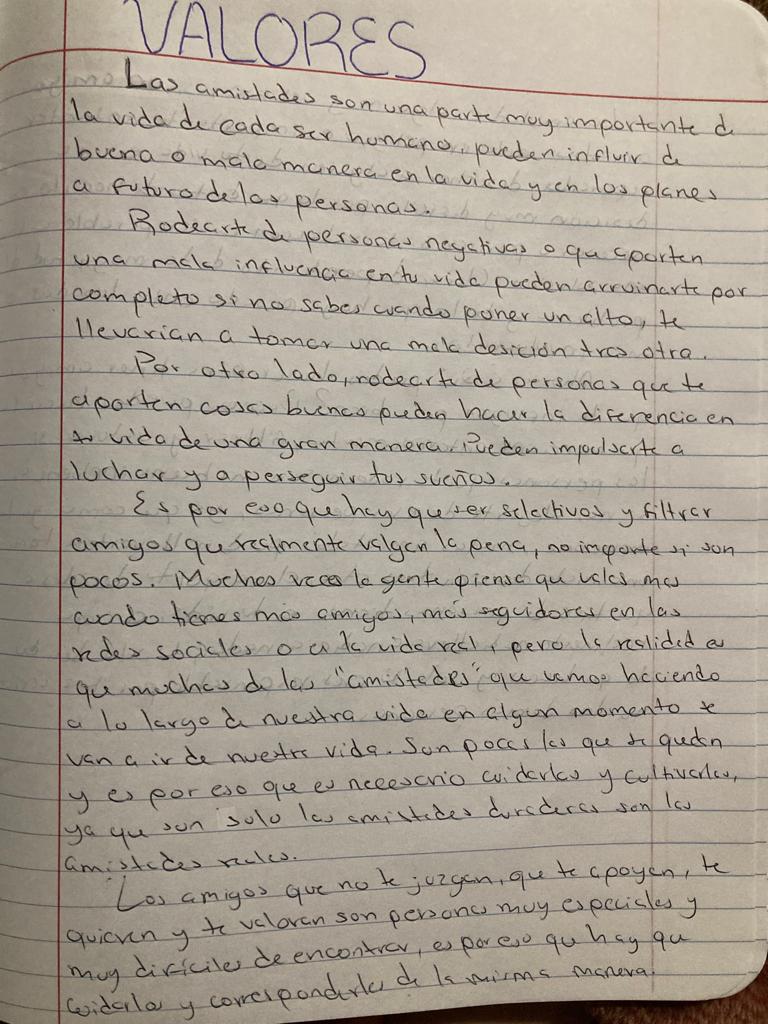 VALORES
Las amistades son una parte muy importante de
la vida de cada ser humano, pueden influir de
buena o mala manera en la vida y en los planes
a futuro de las personas.
Rodearte de personas negativas o que aporten
una mala influencia en tu vida pueden arruinarte por
completo si no sabes cuando poner un alto, te
llevarian a tomar una mala desición tras otra.
Por otro lado, rodearte de personas que te
aporten cosas buenas pueden hacer la diferencia en
tu vida de una gran manera. Pueden impulsarte a
luchar y a perseguir tus sueños.
Es por eso que hay que ser selectivos y filtrar
amigos que realmente valgan la pena, no importe si son
pocos. Muchas veces la gente piensa que vales mas
cuando tienes más amigos, más seguidores en las
redes sociales o en la vida real, pero la realidad es
que muchas de las "amistades" que vamos haciendo
a lo largo de nuestra vida en algun momento se
van a ir de nuestra vida. Son pocas las que se quedan
y es por eso que es necesario cuidarlas y cultivarlas,
ya que son solo las amistades duraderas son las
amistades reales.
Los amigos que no te juzgan, que te apoyan, te
quieren y te valoran son personas muy especiales y
muy dificiles de encontrar, es por eso que hay que
cuidarlos y corresponderles de la misma manera.